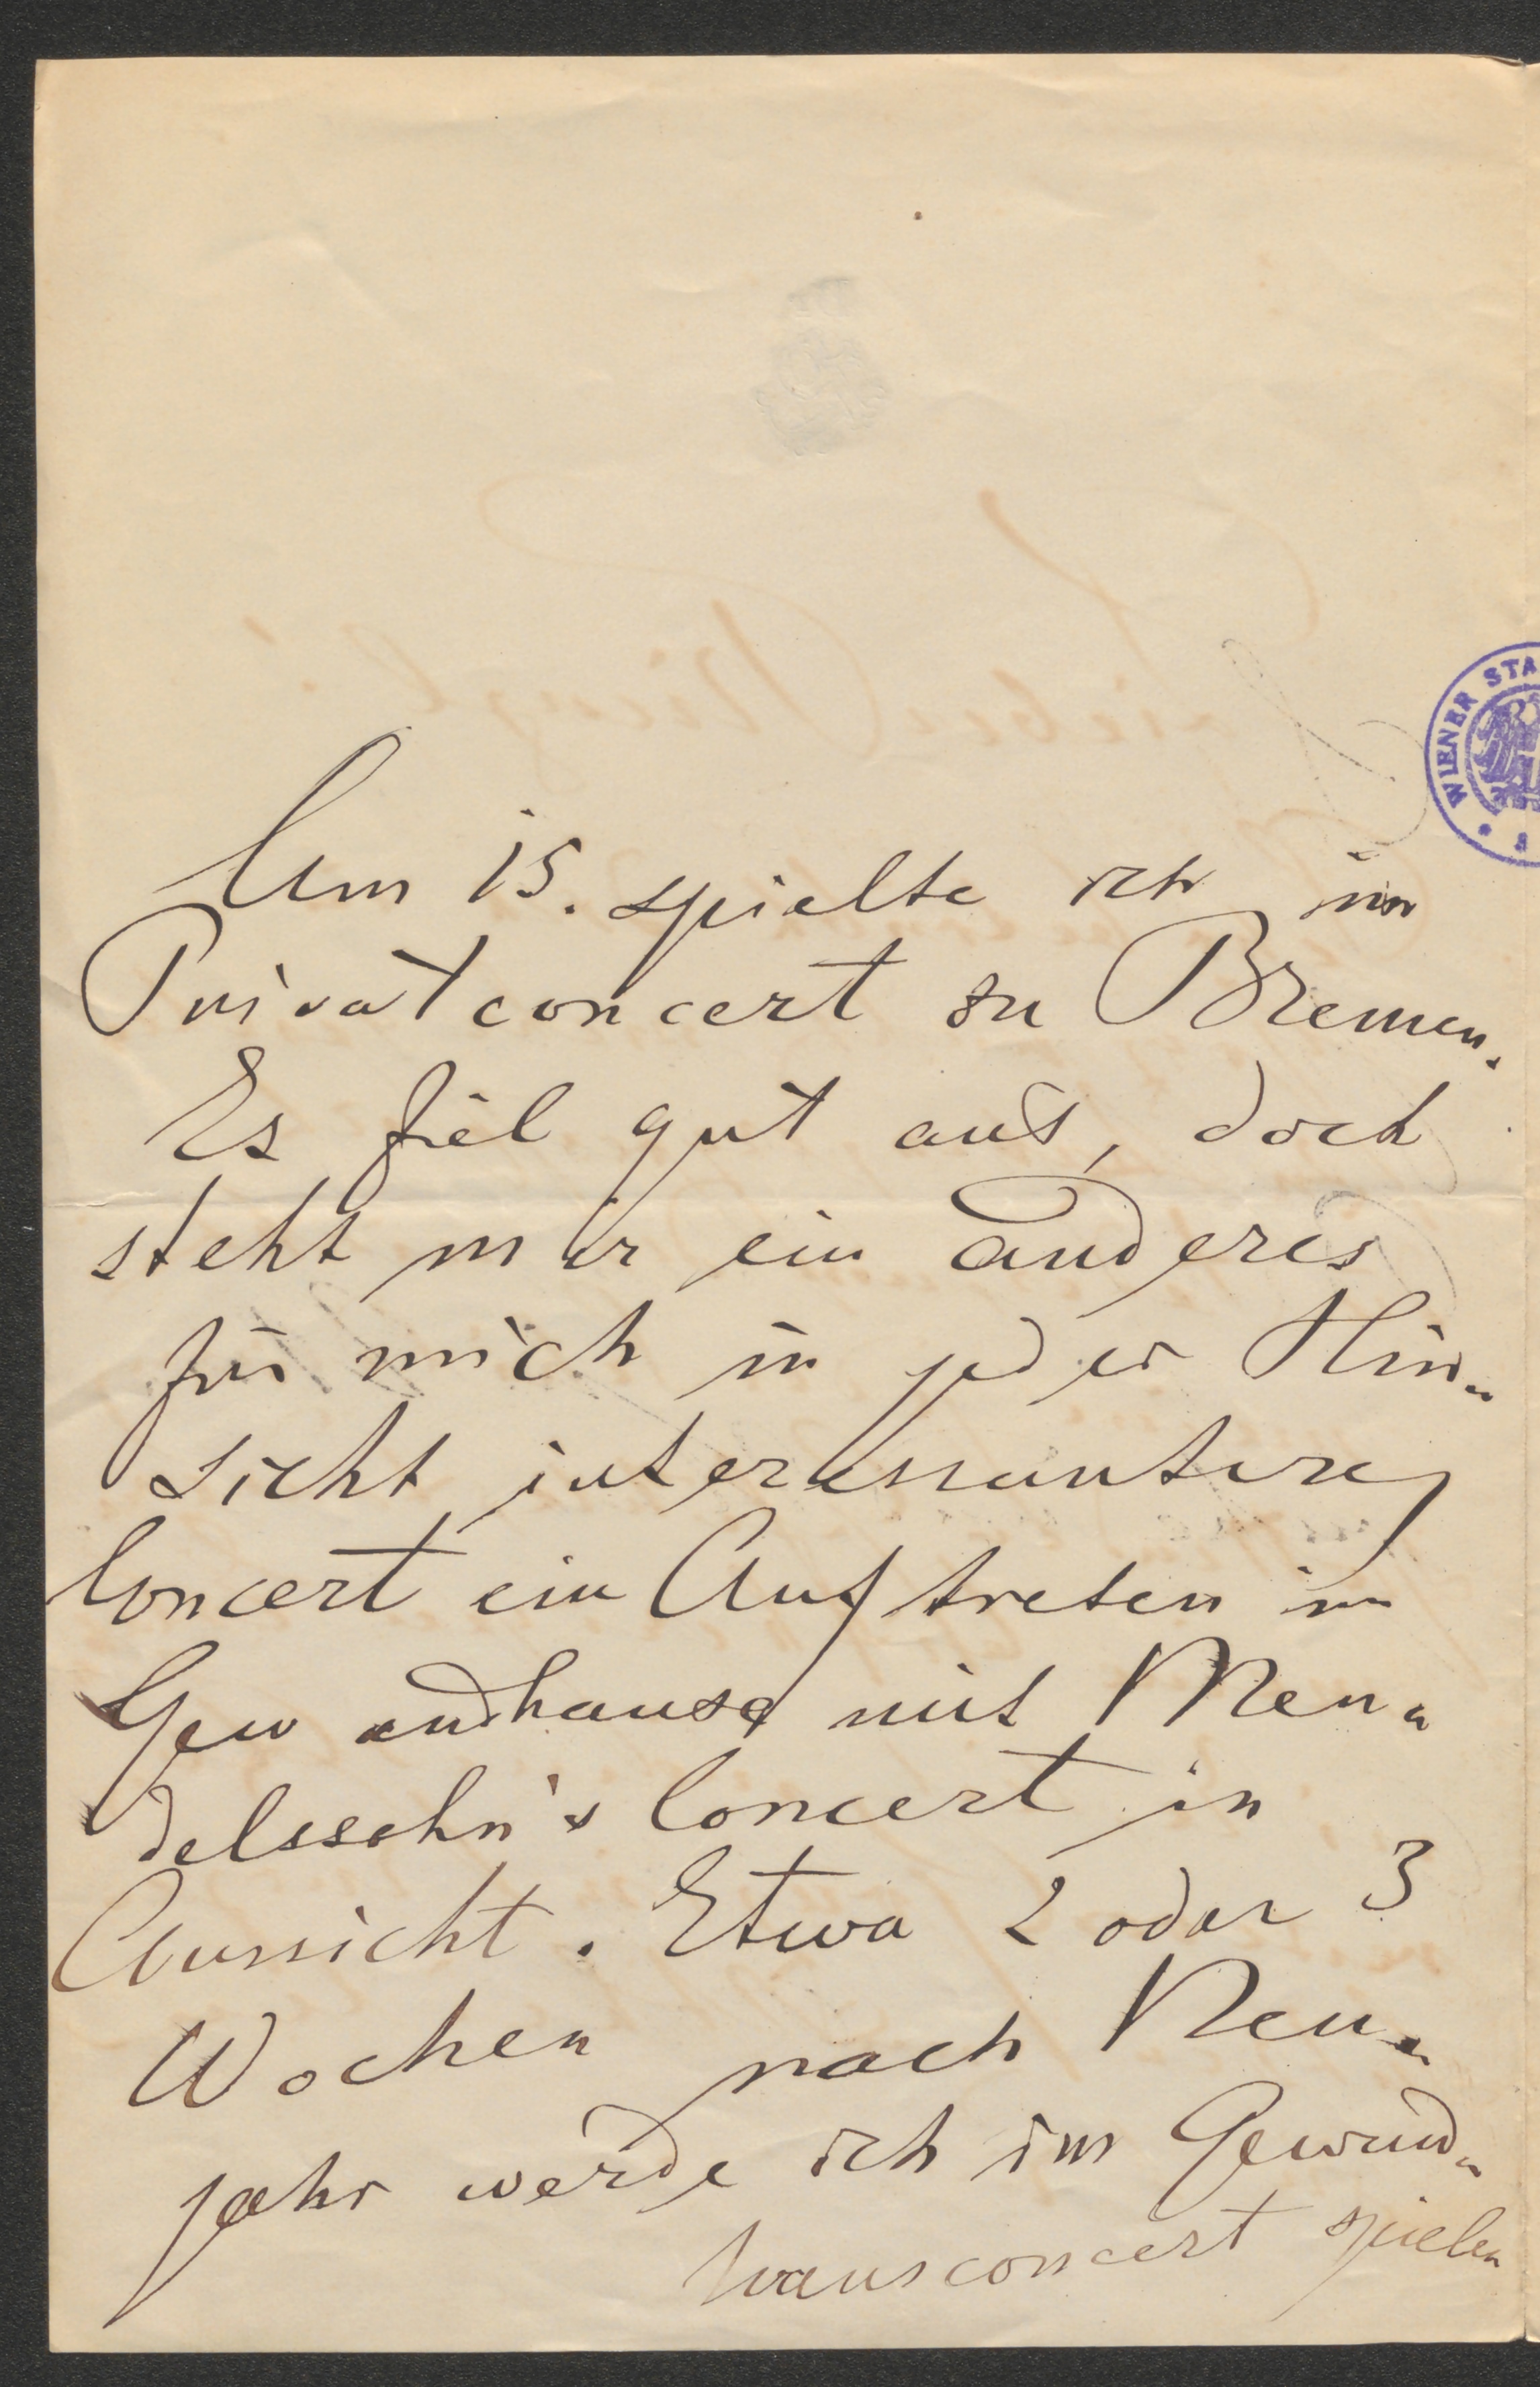 Am 15. spielte ich im
Privatconcert zu Bremen.
Es fiel gut aus, doch
steht mir ein anderes
für mich in jeder Hin-
sicht interessanteres
Concert ein Auftreten im
Gewandhause mit Men-
delssohn's Concert in
Aussicht. Etwa 2 oder 3
Wochen nach Neu-
jahr werde ich im Gewand-
hausconcert spielen
WIENER STA